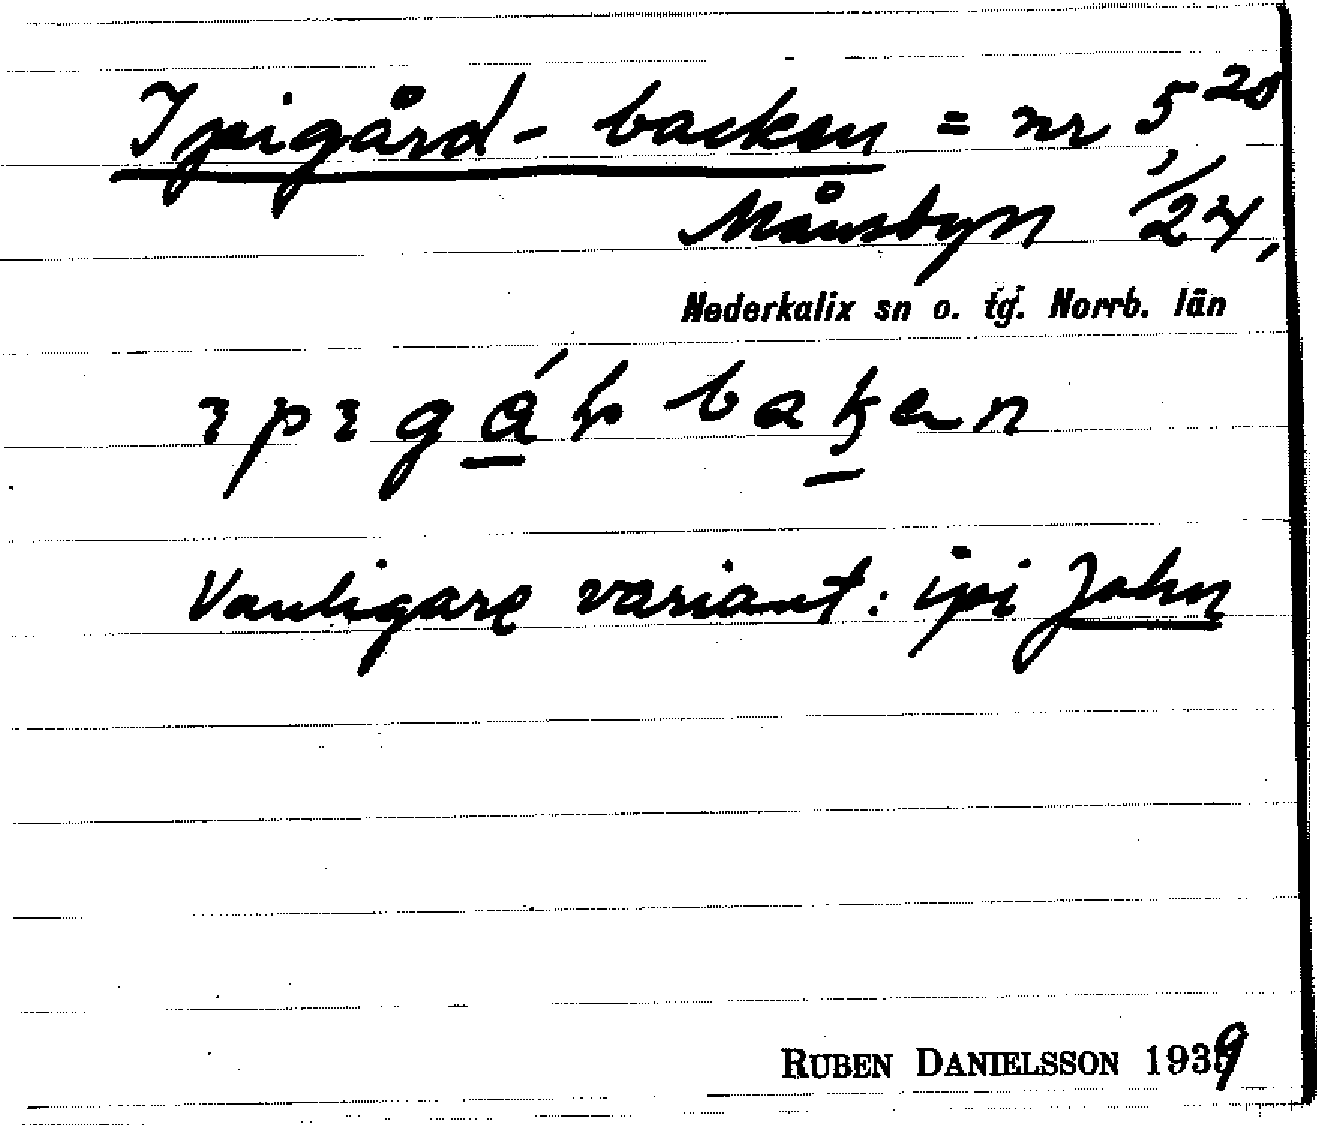 Ipigård-backen = nr 5²⁰
Månsbyn 1/24,
Nederkalix sn o. tg. Norrb. län
ɪpɪgá baken
Vanligare variant: ipi John
RUBEN DANIELSSON 1939